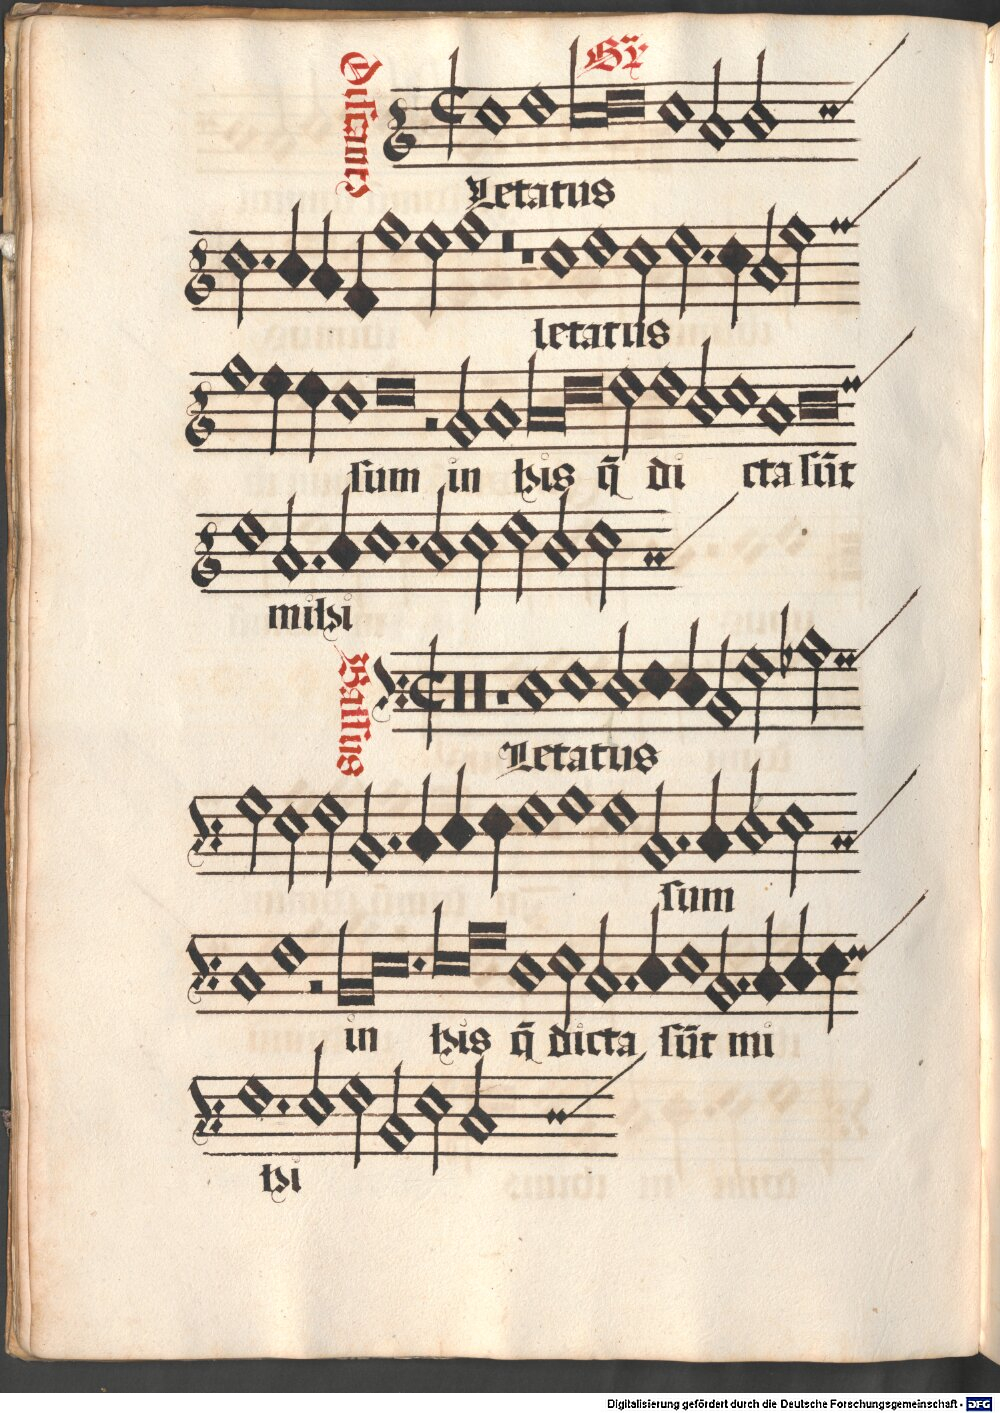 Discantus
Letatus
letatus
sum in his q̄ di cta sūt
mihi
Bassus
Letatus
sum
in his q̄ dicta sūt mi
hi
Digitalisierung gefördert durch die Deutsche Forschungsgemeinschaft - DFG